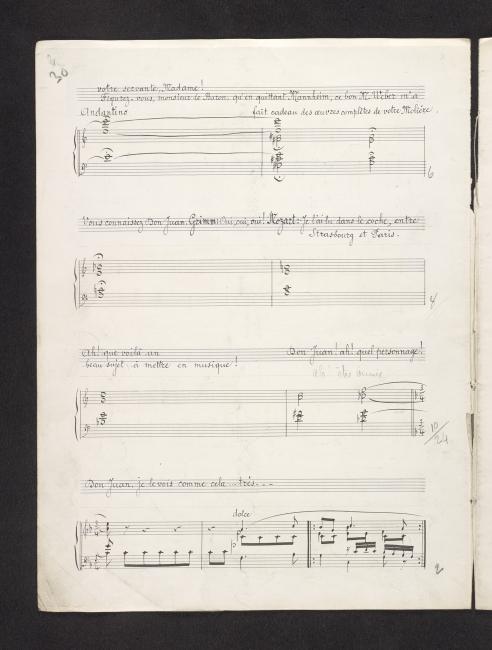 30
votre servante, Madame!
Figurez-vous, monsieur le Baron, qu'en quittant Mannheim, ce bon M. Weber m'a
Andantino fait cadeau des œuvres complètes de votre Molière.
6
Vous connaissez Don Juan. Grimm: Oui, oui, oui! Mozart: Je l'ai lu dans le coche, entre
Strasbourg et Paris.
4
Ah! que voilà un Don Juan! ah! quel personnage!
beau sujet à mettre en musique!
3/4
10/24
Don Juan, je le vois comme cela... très...
dolce
2